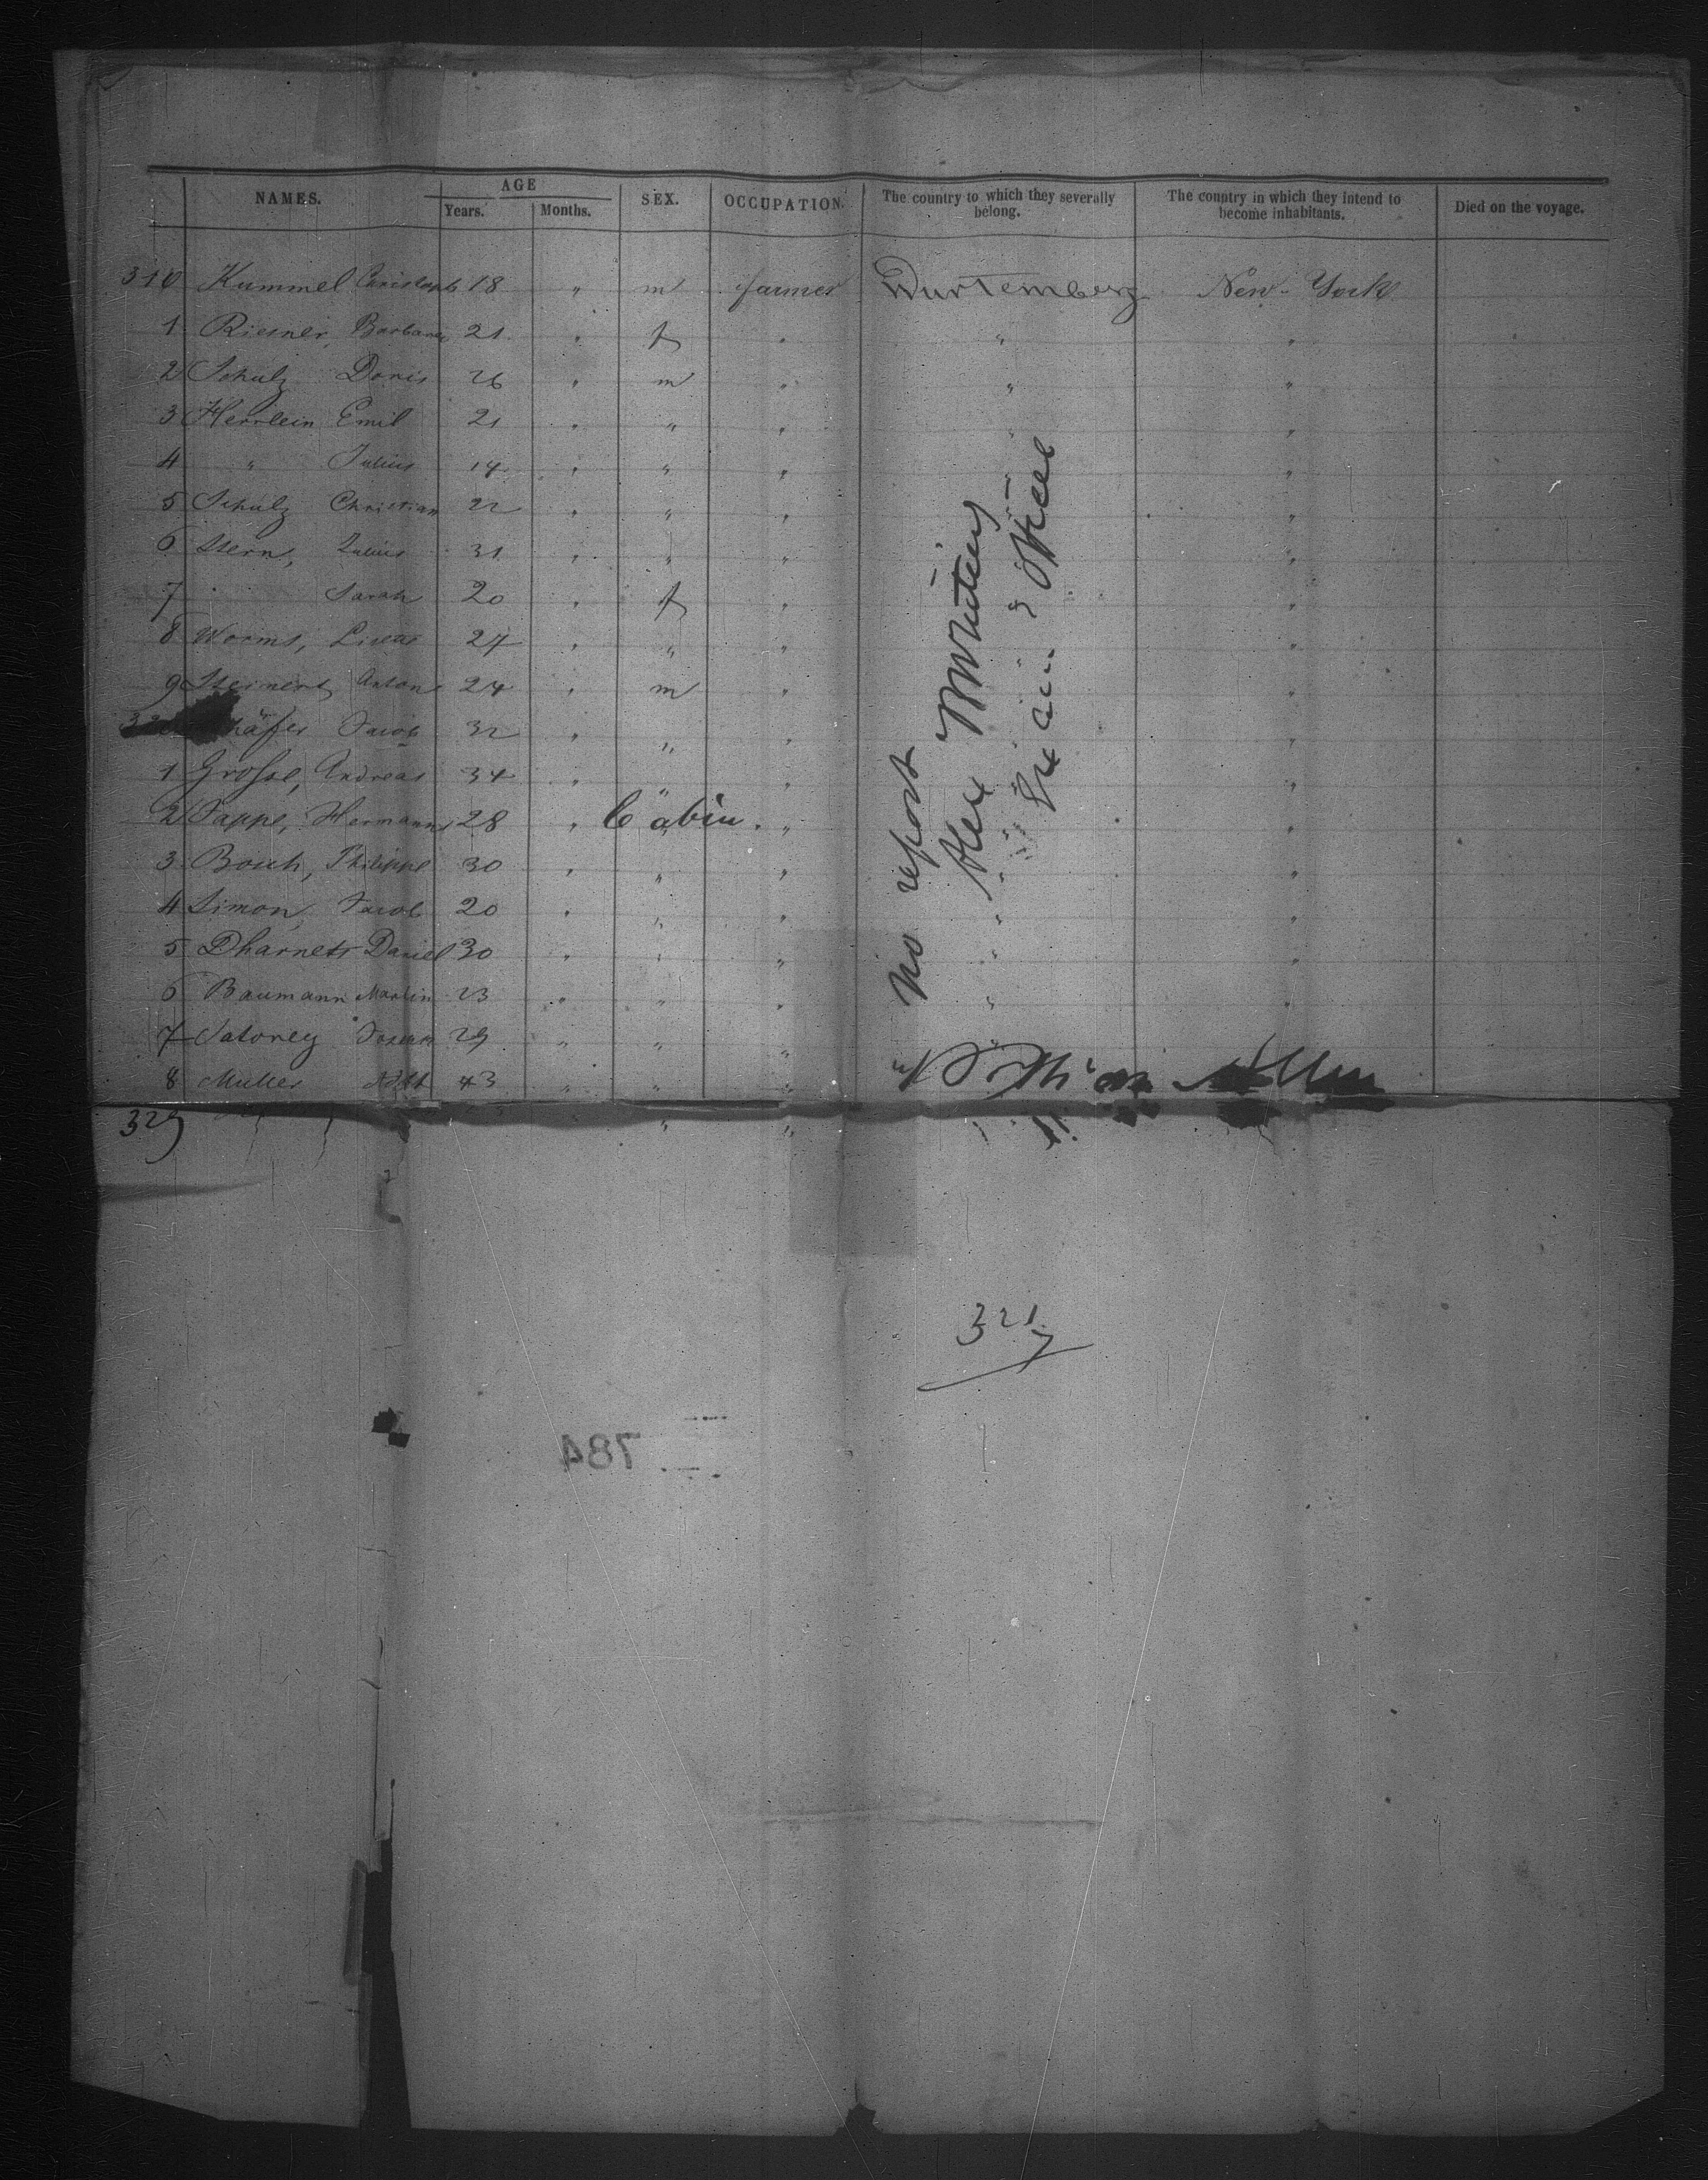 NAMES. AGE SEX. OCCUPATION. The country to which they severally belong. The country in which they intend to become inhabitants. Died on the voyage.
Years. Months.
310 Kummel Christoph 18 " m farmer Wurtemberg New-York
1 Riesner, Barbara 21 " f " " "
2 Schulz Doris 26 " m " " "
3 Herrlein Emil 21 " " " " "
4 " Julius 14 " " " "
5 Schulz Christian 22 " " " "
6 Stern, Julius 31 " " " "
7 " Sarah 20 " f " "
8 Worms, Lisette 27 " " " "
9 Steinert, Anton 24 " m " "
Jacob 32 " " " "
1 Grosse, Andreas 34 " " " "
2 Tappe, Hermann 28 " Cabin. " "
3 Bosch, Philippe 30 " " " "
4 Simon, Jacob 20 " " " "
5 Daniel 30 " " " "
6 Baumann Martin 23 " " " "
7 Joseph 29 " " "
8 Muller 43 " " "
329 " "
No report
321
784